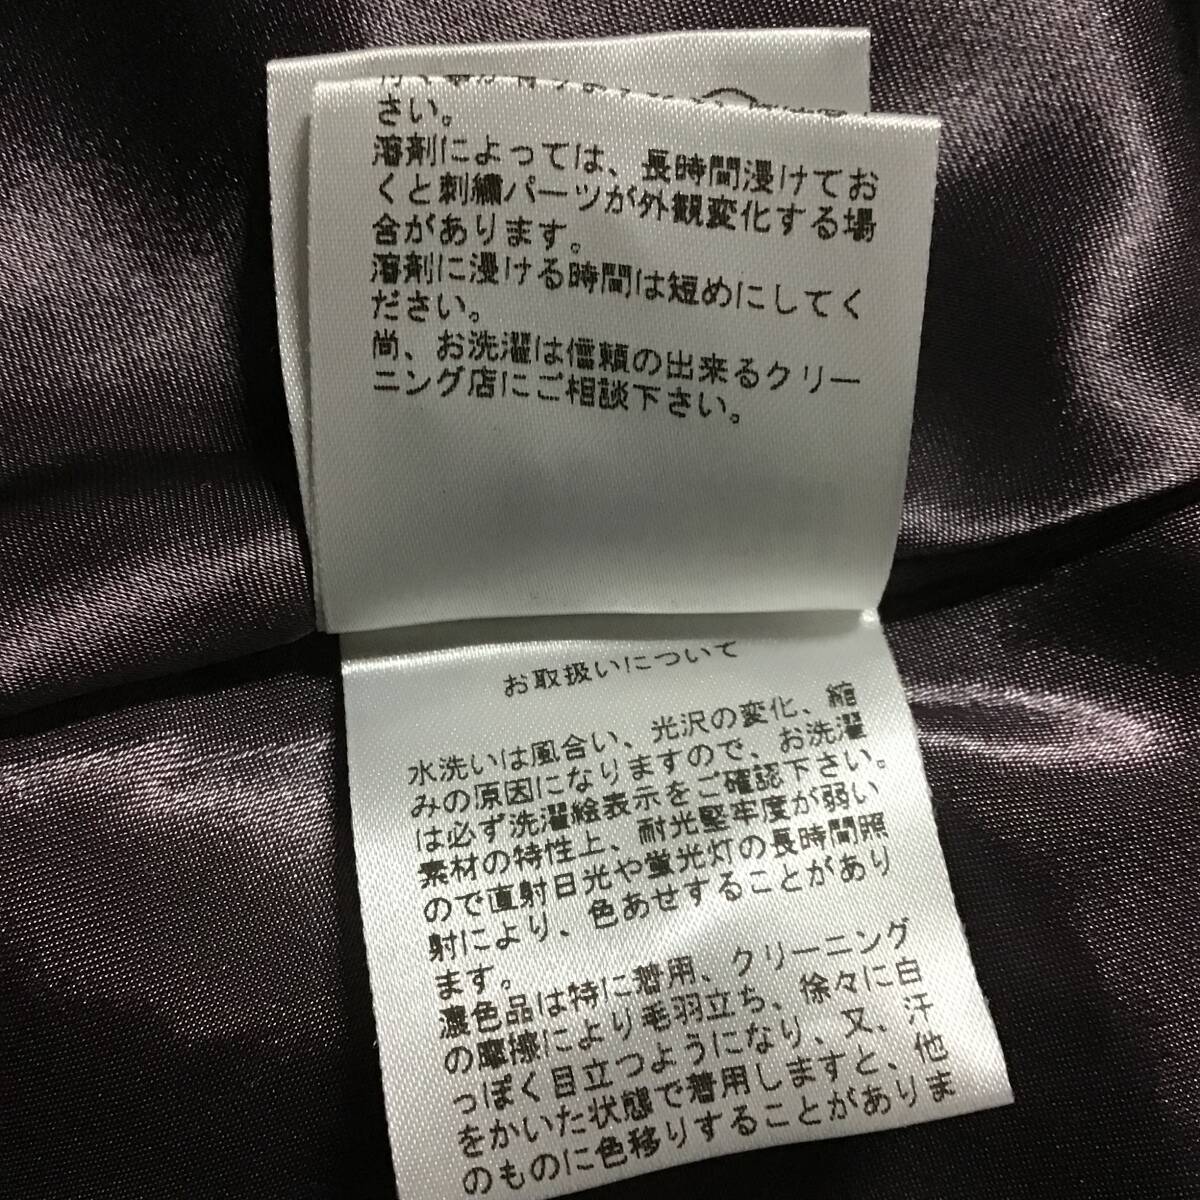 さい。
溶剤によっては、長時間浸けてお
くと刺繍パーツが外観変化する場
合があります。
溶剤に浸ける時間は短めにしてく
ださい。
尚、お洗濯は信頼の出来るクリー
ニング店にご相談下さい。
お取扱いについて
水洗いは風合い、光沢の変化、縮
みの原因になりますので、お洗濯
は必ず洗濯絵表示をご確認下さい。
素材の特性上、耐光堅牢度が弱い
ので直射日光や蛍光灯の長時間照
射により、色あせすることがあり
ます。
濃色品は特に着用、クリーニング
の摩擦により毛羽立ち、徐々に白
っぽく目立つようになり、又、汗
をかいた状態で着用しますと、他
のものに色移りすることがありま